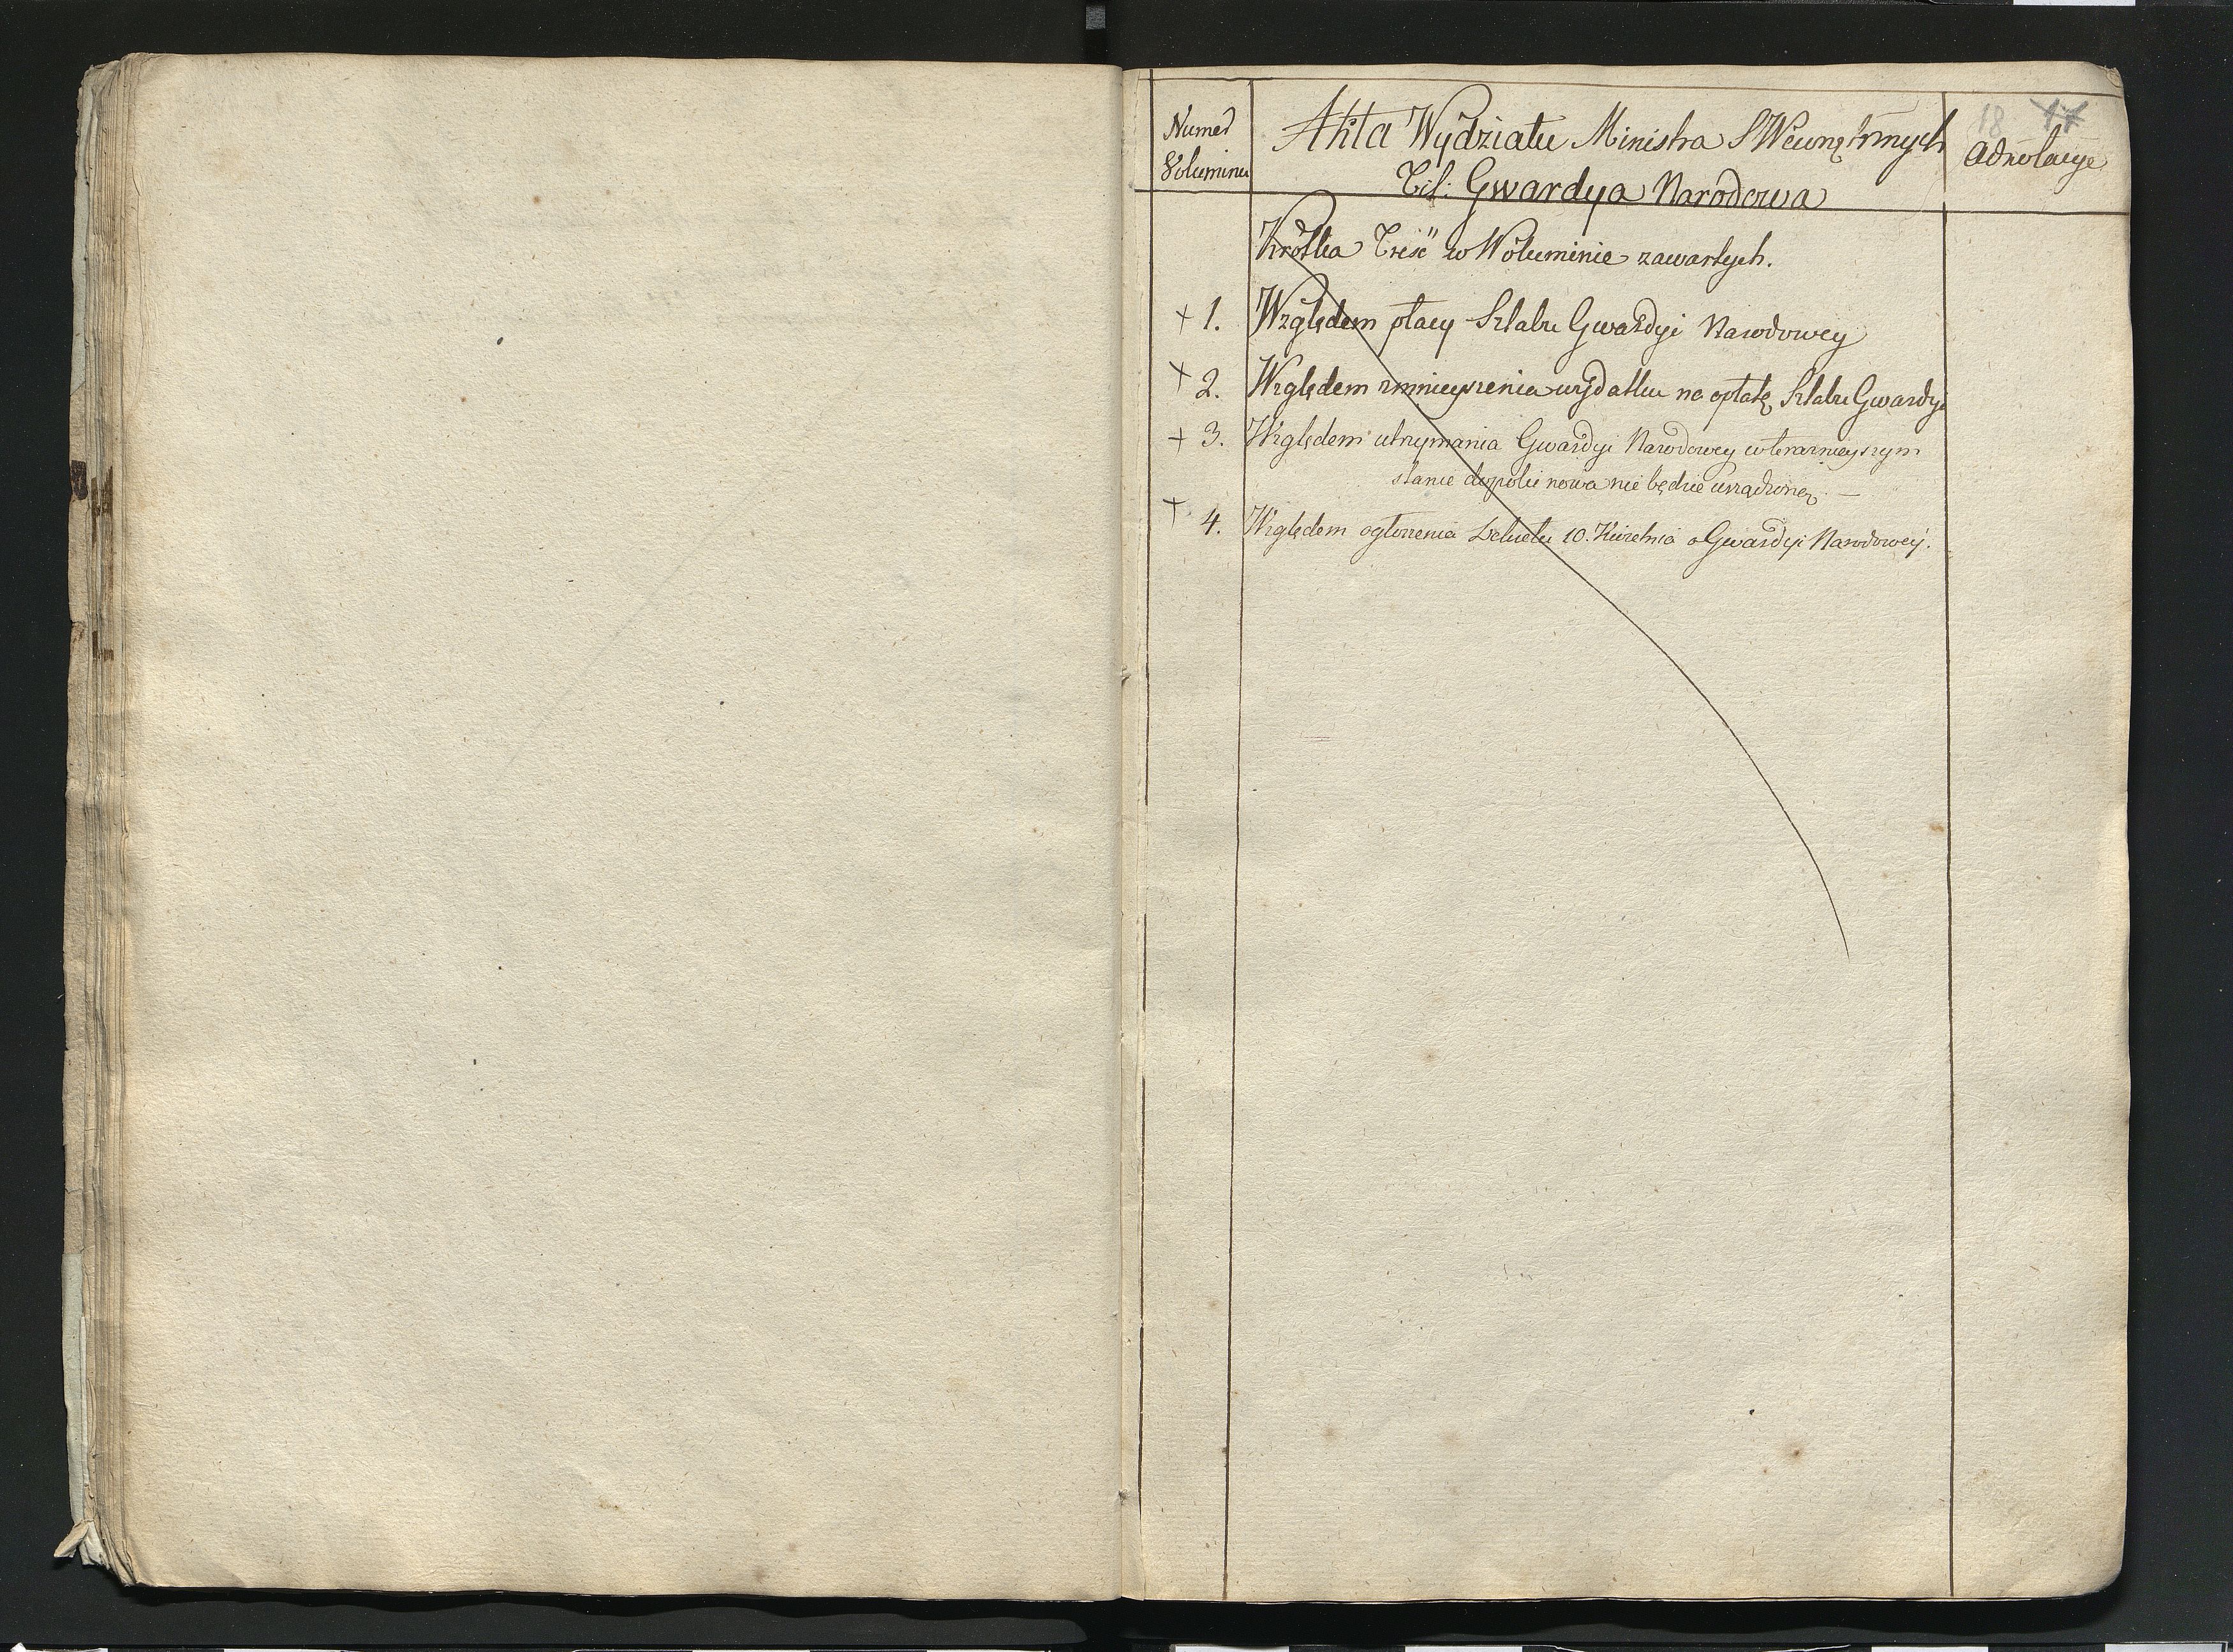 18 17
Numer
Voluminu
Akta Wydziału Ministra S Wewnętrznych
Tit: Gwardya Narodowa
Adnotacye
Krótka Treść w Woluminie zawartych.
+ 1. Względem płacy Sztabu Gwardyi Narodowey
+ 2. Względem zmnieyszenia wydatku na opłatę Sztabu Gwardyi
+ 3. Względem utrzymania Gwardyi Narodowey w teraznieyszym
stanie dopóki nowa nie będzie urządzoną. —
+ 4. Względem ogłoszenia Dekretu 10. Kwietnia o Gwardyi Narodowey.